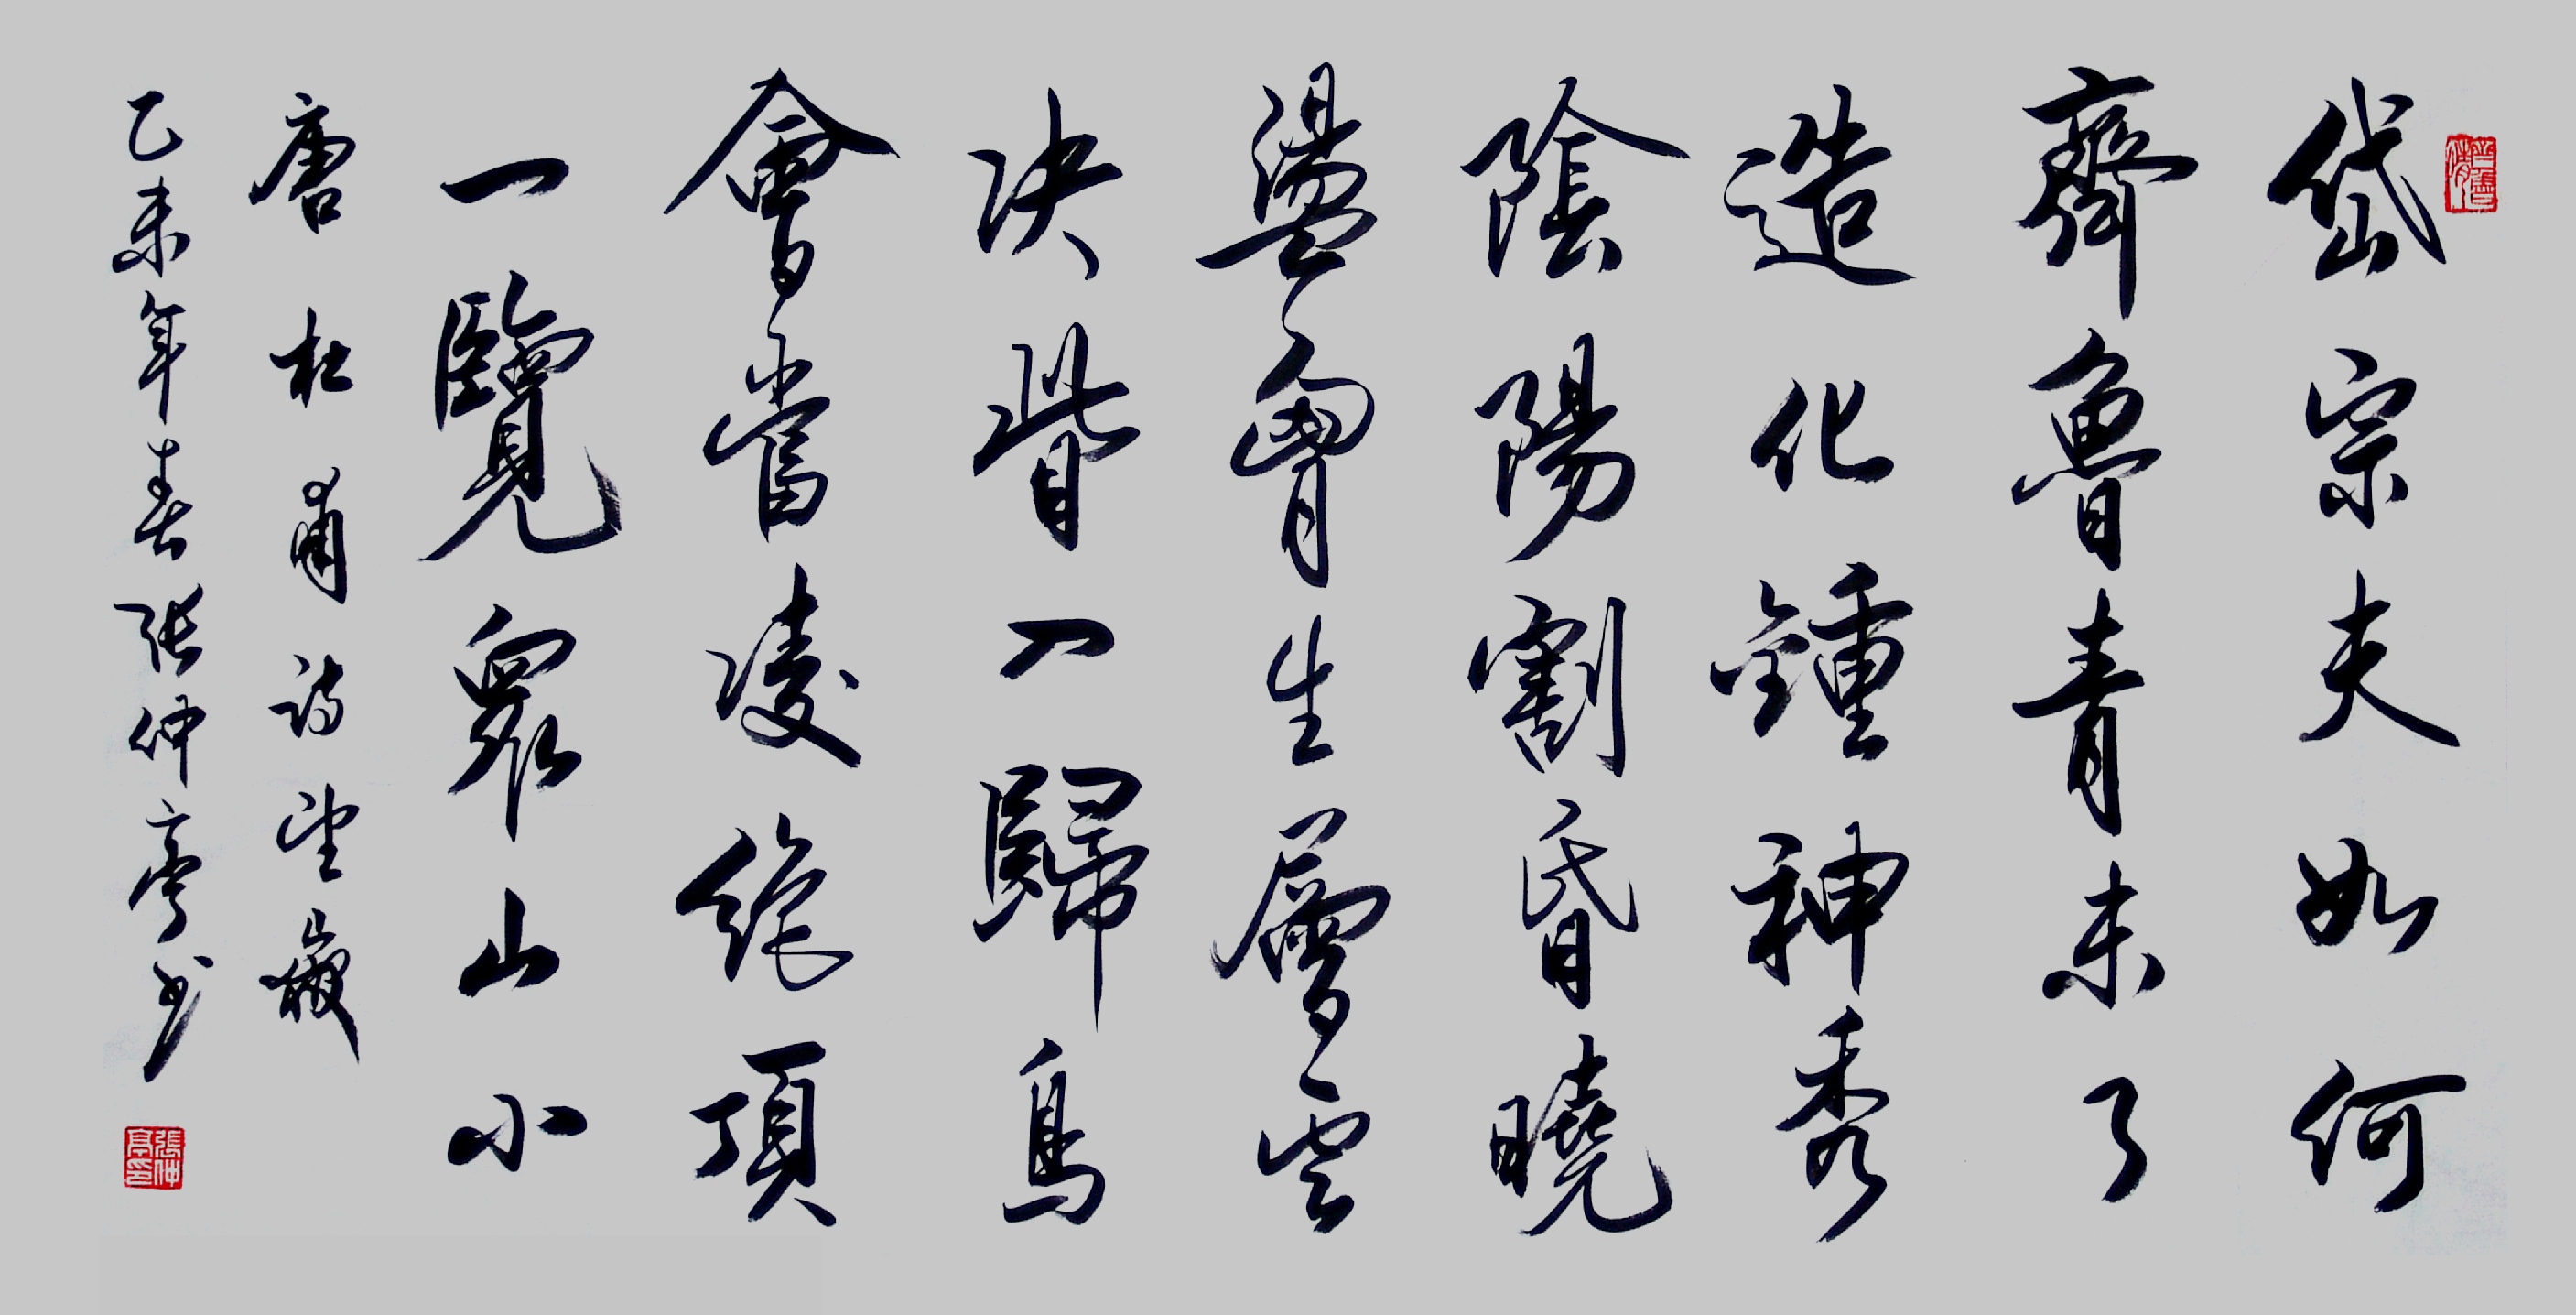 岱宗夫如何
齊魯青未了
造化鍾神秀
陰陽割昏曉
盪胷生層雲
决眥入歸鳥
會當凌絶頂
一覽衆山小
唐杜甫詩望嶽
乙未年春張仲亭书
張仲亭印